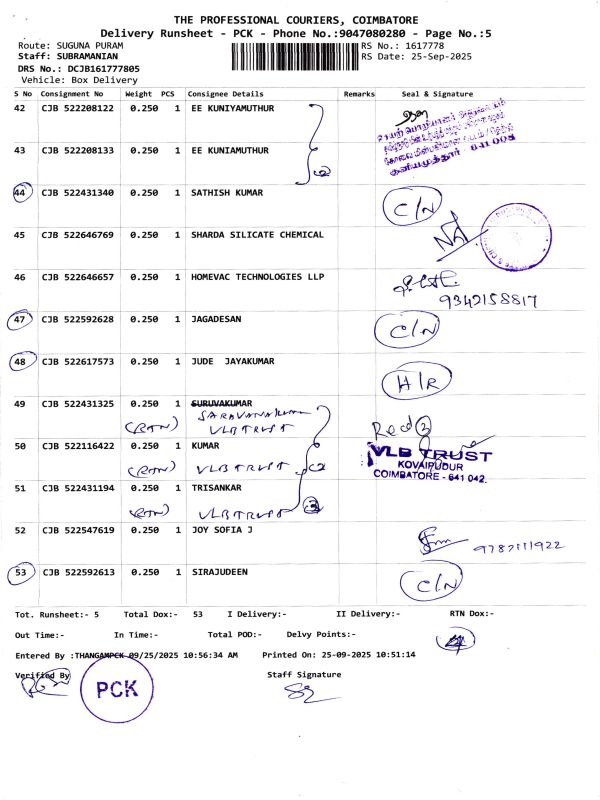 THE PROFESSIONAL COURIERS, COIMBATORE
Delivery Runsheet - PCK - Phone No.:9047080280 - Page No.:5
Route: SUGUNA PURAM RS No.: 1617778
Staff: SUBRAMANIAN RS Date: 25-Sep-2025
DRS No.: DCJB161777805
Vehicle: Box Delivery
S No Consignment No Weight PCS Consignee Details Remarks Seal & Signature
42 CJB 522208122 0.250 1 EE KUNIYAMUTHUR
43 CJB 522208133 0.250 1 EE KUNIAMUTHUR
44 CJB 522431340 0.250 1 SATHISH KUMAR C/N
45 CJB 522646769 0.250 1 SHARDA SILICATE CHEMICAL
46 CJB 522646657 0.250 1 HOMEVAC TECHNOLOGIES LLP
9342158817
47 CJB 522592628 0.250 1 JAGADESAN C/N
48 CJB 522617573 0.250 1 JUDE JAYAKUMAR H/R
49 CJB 431325 0.250 1 SURUVAKUMAR
SARAVANAKUMAR
(RTN) VLB TRUST Recd 3
50 CJB 522116422 0.250 1 KUMAR
(RTN) VLB TRUST
VLB TRUST
KOVAIPUDUR
COIMBATORE - 641 042.
51 CJB 522431194 0.250 1 TRISANKAR
(RTN) VLB TRUST 3
52 CJB 522547619 0.250 1 JOY SOFIA J
9787111922
53 CJB 522592613 0.250 1 SIRAJUDEEN C/N
Tot. Runsheet:- 5 Total Dox:- 53 I Delivery:- II Delivery:- RTN Dox:-
Out Time:- In Time:- Total POD:- Delvy Points:-
Entered By :THANGAMPCK 09/25/2025 10:56:34 AM Printed On: 25-09-2025 10:51:14
Verified By Staff Signature
PCK